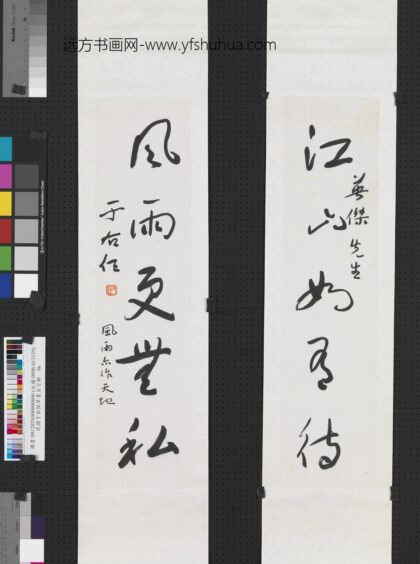 远方书画网-www.yfshuhua.com
江山如有待
英傑先生
風雨更無私
于右任
風雨亦作天地